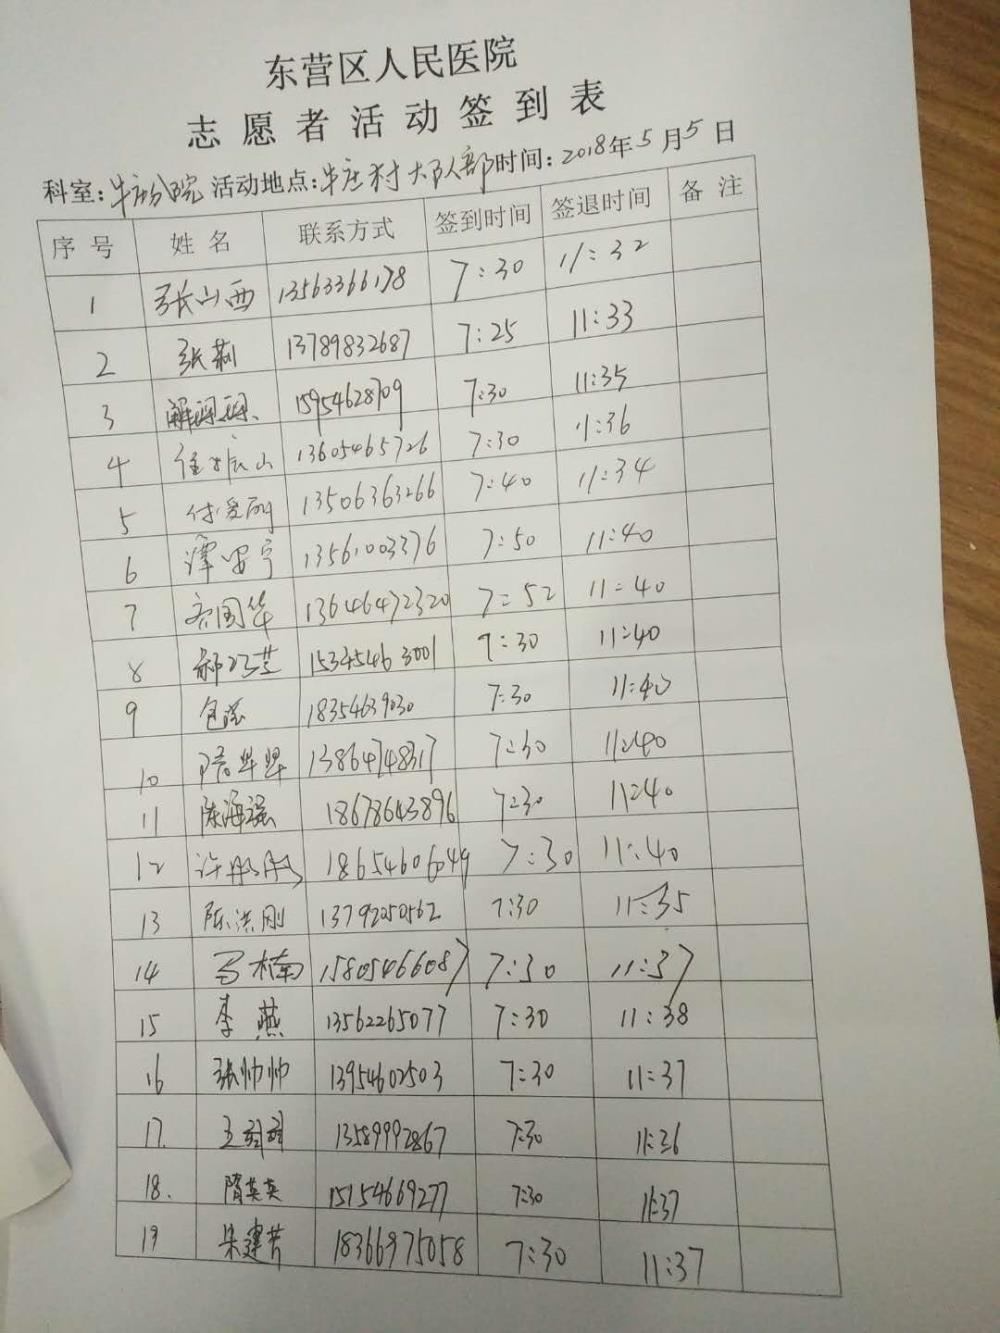 东营区人民医院
志愿者活动签到表
科室:牛庄分院 活动地点:牛庄村大队部时间:2018年5月5日
序号 姓名 联系方式 签到时间 签退时间 备注
1 张山西 13563366178 7:30 11:32
2 张莉 13789832687 7:25 11:33
3 15954628709 7:30 11:35
4 13605465726 7:30 11:36
5 13506363266 7:40 11:34
6 谭安宁 13561003376 7:50 11:40
7 齐国华 13646472320 7:52 11:40
8 15345463001 7:30 11:40
9 18354639030 7:30 11:40
10 13864748317 7:30 11:40
11 陈海强 18678643896 7:30 11:40
12 18654606049 7:30 11:40
13 陈洪刚 13792250562 7:30 11:35
14 马楠 15805466087 7:30 11:37
15 李燕 13562265077 7:30 11:38
16 张帅帅 13954602503 7:30 11:37
17. 13589992867 7:30 11:36
18. 隋英英 15154669277 7:30 11:37
19 朱建芳 18366975058 7:30 11:37